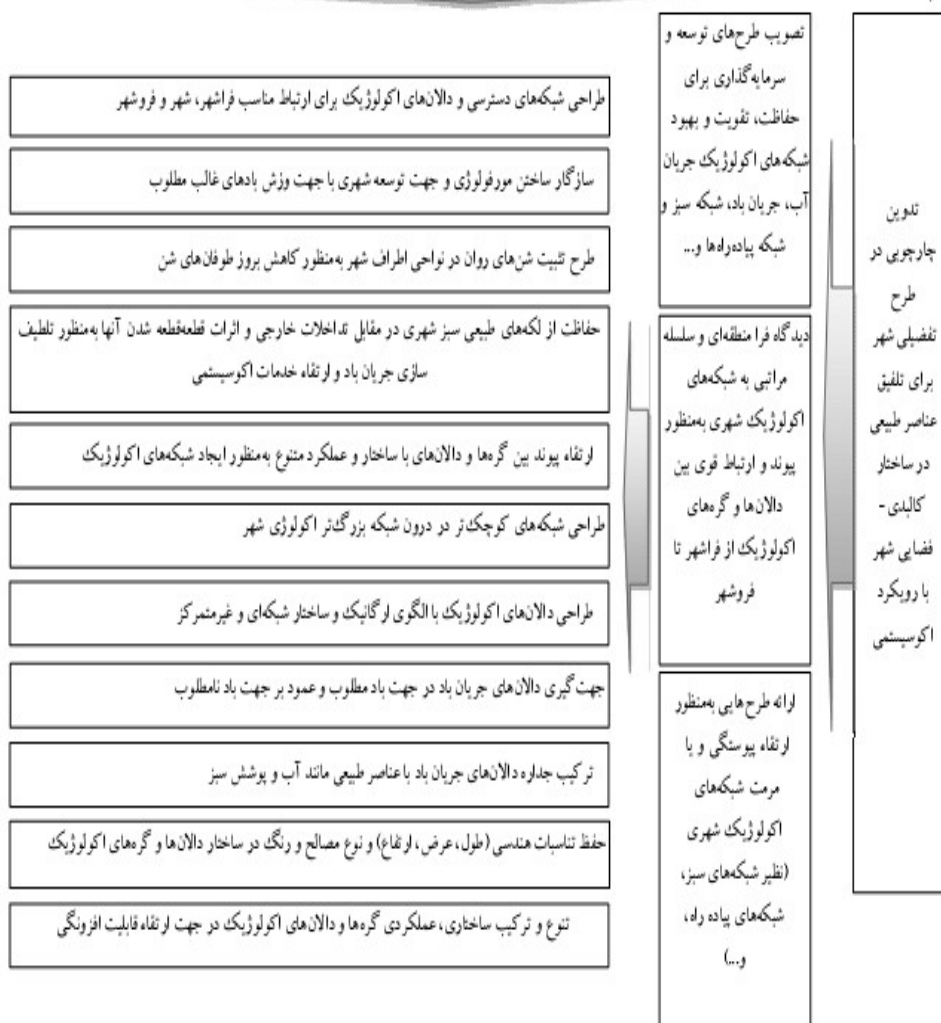 تدوین
چارچوبی در
طرح
تفضیلی شهر
برای تلفیق
عناصر طبیعی
در ساختار
کالبدی -
فضایی شهر
با رویکرد
اکوسیستمی
تصویب طرح‌های توسعه و
سرمایه‌گذاری برای
حفاظت، تقویت و بهبود
شبکه‌های اکولوژیک جریان
آب، جریان باد، شبکه سبز و
شبکه پیاده‌راه‌ها و...
دیدگاه فرا منطقه‌ای و سلسله
مراتبی به شبکه‌های
اکولوژیک شهری به‌منظور
پیوند و ارتباط قوی بین
دالان‌ها و گره‌های
اکولوژیک از فراشهر تا
فروشهر
ارائه طرح‌هایی به‌منظور
ارتقاء پیوستگی و یا
مرمت شبکه‌های
اکولوژیک شهری
(نظیر شبکه‌های سبز،
شبکه‌های پیاده راه،
و...)
طراحی شبکه‌های دسترسی و دالان‌های اکولوژیک برای ارتباط مناسب فراشهر، شهر و فروشهر
سازگار ساختن مورفولوژی و جهت توسعه شهری با جهت وزش بادهای غالب مطلوب
طرح تثبیت شن‌های روان در نواحی اطراف شهر به‌منظور کاهش بروز طوفان‌های شن
حفاظت از لکه‌های طبیعی سبز شهری در مقابل تداخلات خارجی و اثرات قطعه‌قطعه شدن آنها به‌منظور تلطیف
سازی جریان باد و ارتقاء خدمات اکوسیستمی
ارتقاء پیوند بین گره‌ها و دالان‌های با ساختار و عملکرد متنوع به‌منظور ایجاد شبکه‌های اکولوژیک
طراحی شبکه‌های کوچک‌تر در درون شبکه بزرگ‌تر اکولوژی شهر
طراحی دالان‌های اکولوژیک با الگوی ارگانیک و ساختار شبکه‌ای و غیرمتمرکز
جهت‌گیری دالان‌های جریان باد در جهت باد مطلوب و عمود بر جهت باد نامطلوب
ترکیب جداره دالان‌های جریان باد با عناصر طبیعی مانند آب و پوشش سبز
حفظ تناسبات هندسی (طول، عرض، ارتفاع) و نوع مصالح و رنگ در ساختار دالان‌ها و گره‌های اکولوژیک
تنوع و ترکیب ساختاری، عملکردی گره‌ها و دالان‌های اکولوژیک در جهت ارتقاء قابلیت افزونگی